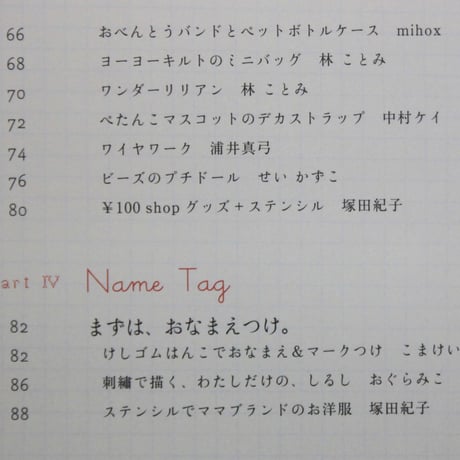 66 おべんとうバンドとペットボトルケース mihox
68 ヨーヨーキルトのミニバッグ 林 ことみ
70 ワンダーリリアン 林 ことみ
72 ぺたんこマスコットのデカストラップ 中村ケイ
74 ワイヤワーク 浦井真弓
76 ビーズのプチドール せい かずこ
80 ¥100 shop グッズ+ステンシル 塚田紀子
art Ⅳ Name Tag
82 まずは、おなまえつけ。
82 けしゴムはんこでおなまえ&マークつけ こまけい
86 刺繡で描く、わたしだけの、しるし おぐらみこ
88 ステンシルでママブランドのお洋服 塚田紀子